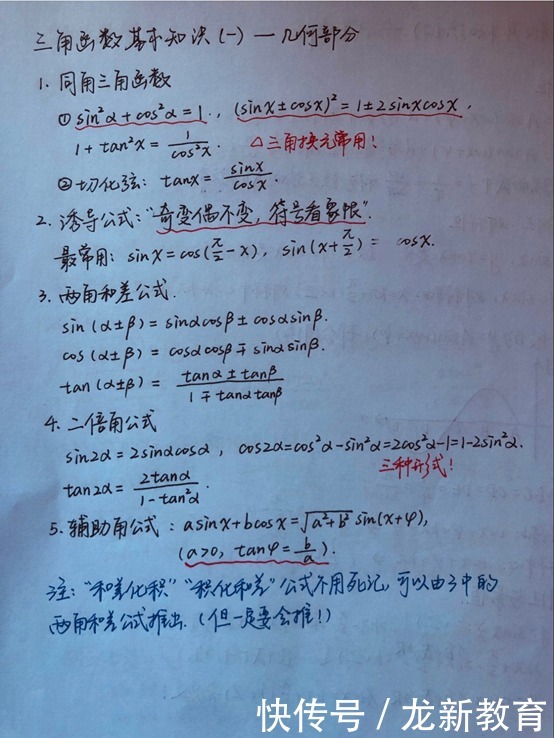 三角函数基本知识(一) — 几何部分
1. 同角三角函数
① sin²α+cos²α=1., (sinx±cosx)²=1±2sinxcosx,
1+tan²x = 1/cos²x. △三角换元常用!
②切化弦: tanx = sinx/cosx.
2. 诱导公式:"奇变偶不变, 符号看象限".
最常用: sinx=cos(π/2-x), sin(x+π/2) = cosx.
3. 两角和差公式.
sin(α±β)=sinαcosβ±cosαsinβ.
cos(α±β)=cosαcosβ∓sinαsinβ.
tan(α±β) = tanα±tanβ/1∓tanαtanβ
4. 二倍角公式
sin2α=2sinαcosα, cos2α=cos²α-sin²α=2cos²α-1=1-2sin²α.
三种形式!
tan2α = 2tanα/1-tan²α.
5. 辅助角公式: asinx+bcosx=√a²+b² sin(x+φ),
(a>0, tanφ=b/a).
注: "和差化积" "积化和差" 公式不用死记, 可以由3中的
两角和差公式推出. (但一定要会推!)
快传号 / 龙新教育